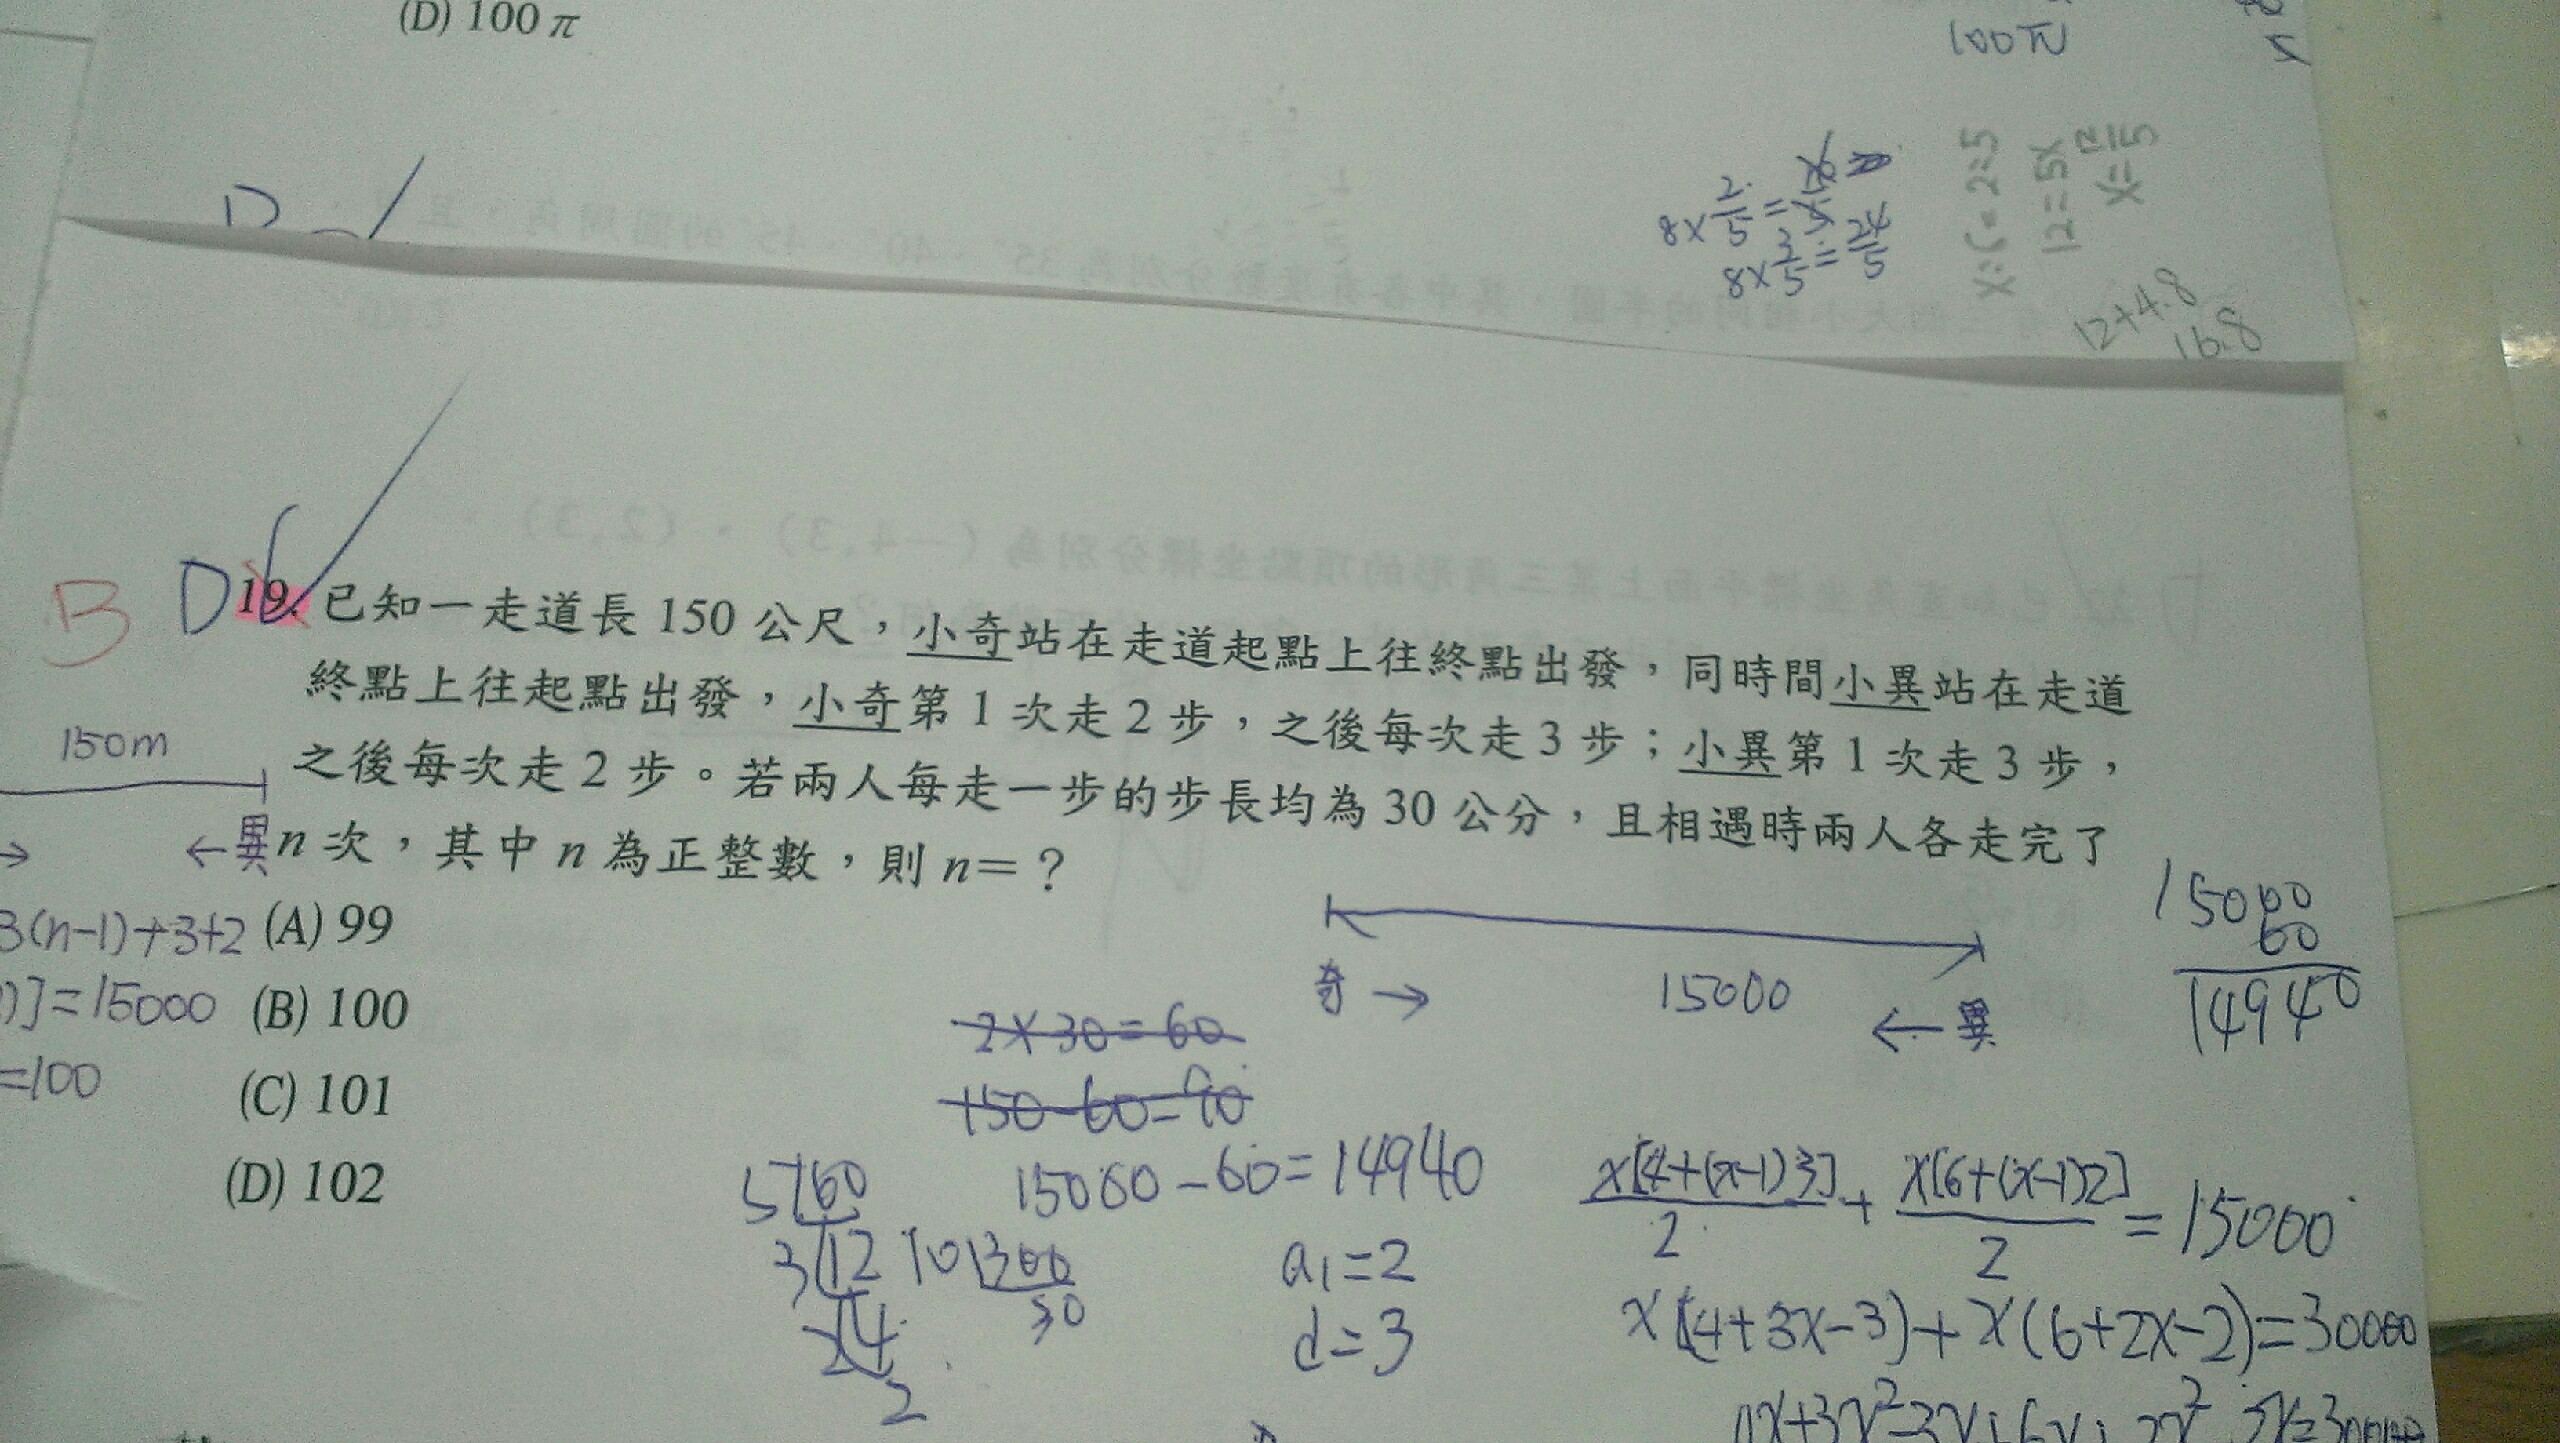 (D) 100 π
100π
5
8×2/5=
8×3/5=24/5
x:6=2:5
12=5x
x=12/5
12+4.8
16.8
D
B
D
19. 已知一走道長 150 公尺，小奇站在走道起點上往終點出發，同時間小異站在走道
終點上往起點出發，小奇第 1 次走 2 步，之後每次走 3 步；小異第 1 次走 3 步，
之後每次走 2 步。若兩人每走一步的步長均為 30 公分，且相遇時兩人各走完了
n 次，其中 n 為正整數，則 n=？
150m
→ ←異
3(n-1)+3+2
)]=15000
=100
(A) 99
(B) 100
(C) 101
(D) 102
奇→
15000
←異
15000
60
14940
2×30=60
150-60=90
15000-60=14940
5 60
3 12
2 4
2
10 300
30
a₁=2
d=3
x[4+(x-1)3]/2+x[6+(x-1)2]/2=15000
x(4+3x-3)+x(6+2x-2)=30000